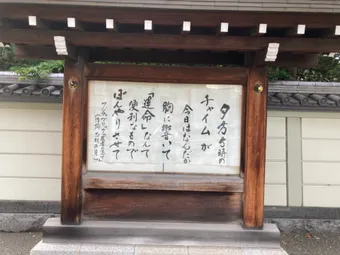 夕方5時の
チャイムが
今日はなんだか
胸に響いて
「運命」なんて
便利なもので
ぼんやりさせて